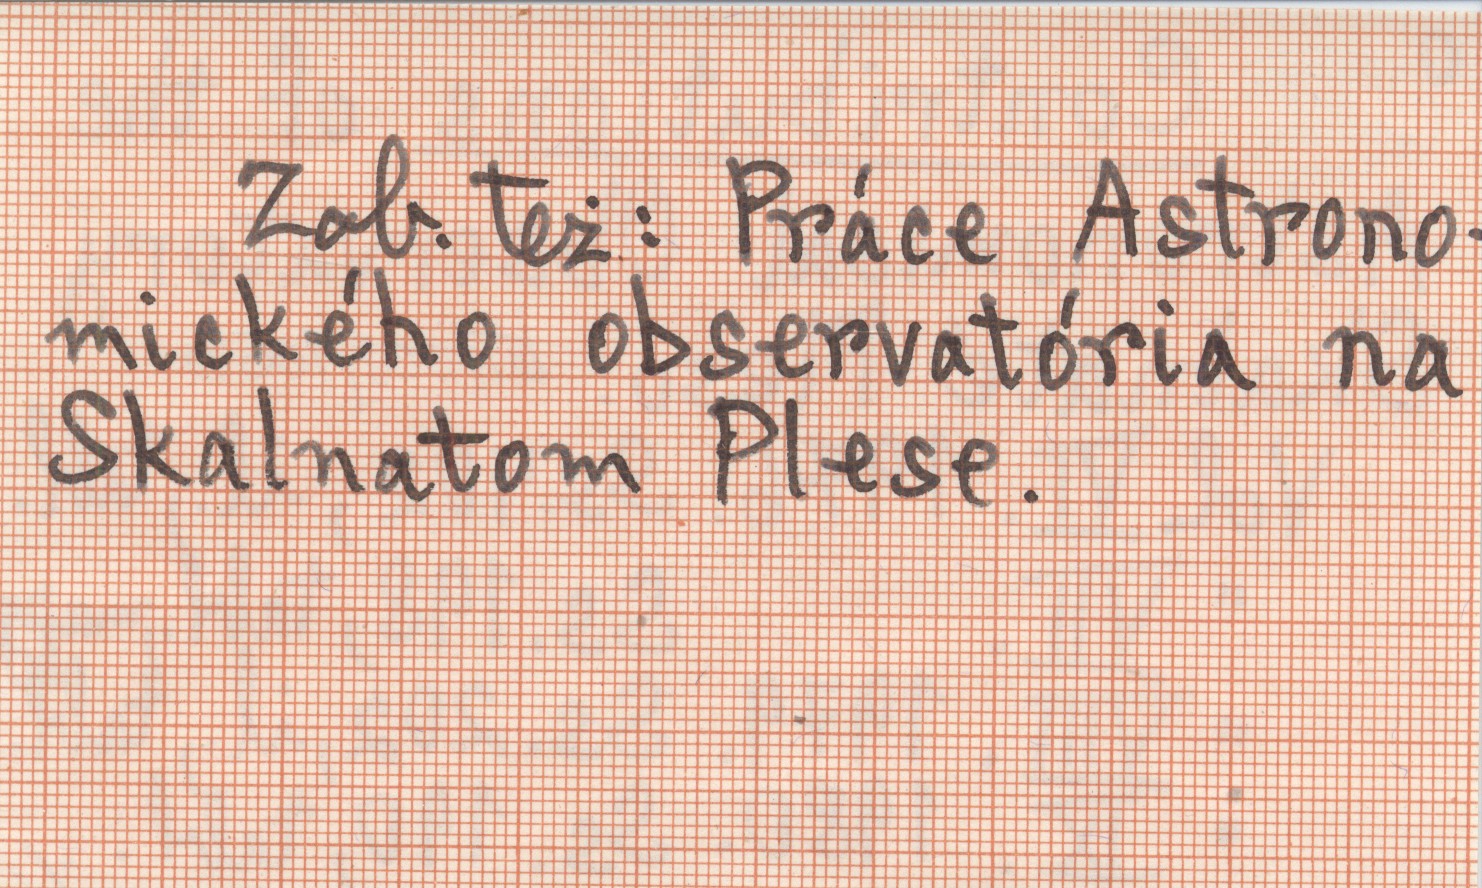 Zob. też: Práce Astrono-
mického observatória na
Skalnatom Plese.